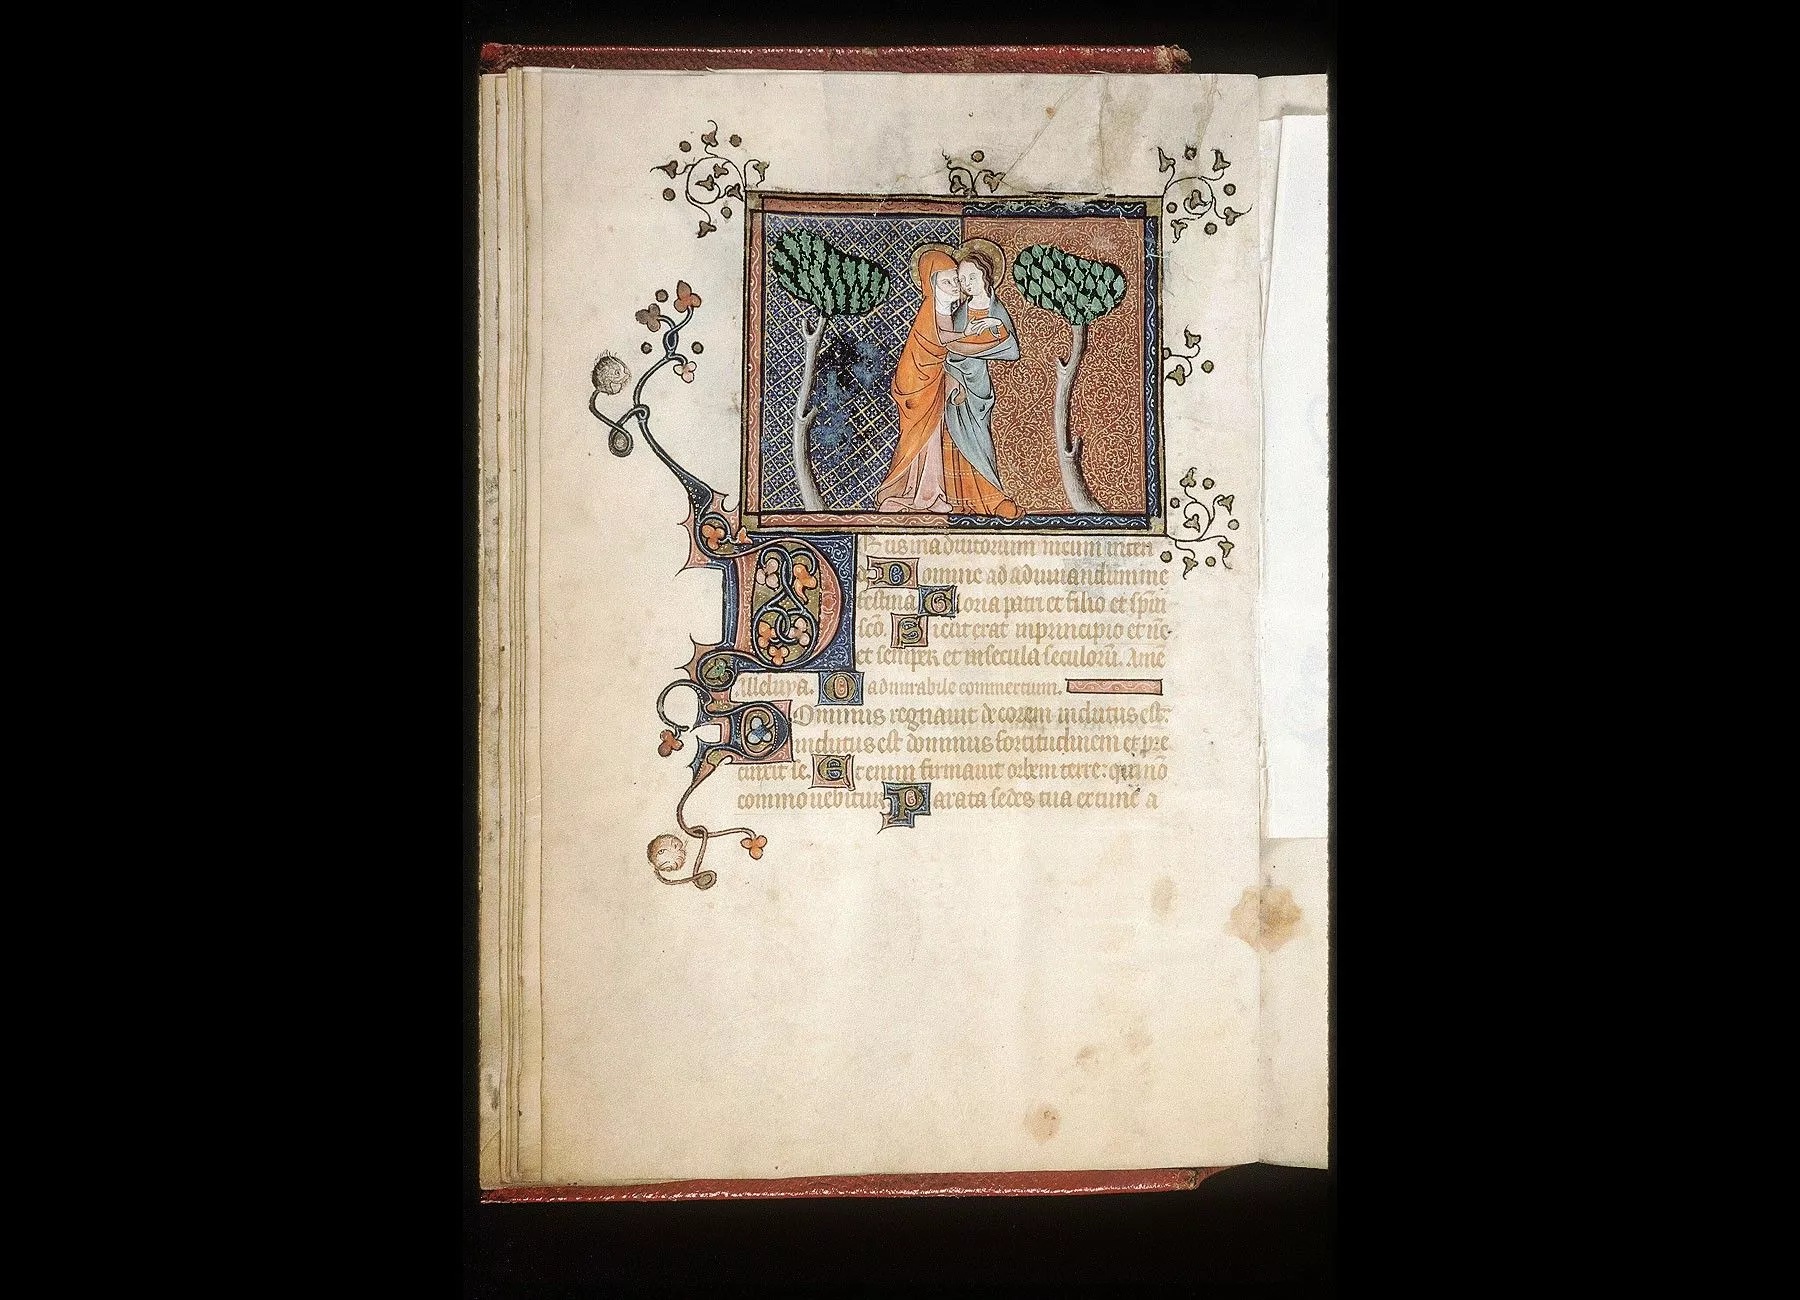 Eus in adiutorium meum inten
de Domine ad adiuuandum me
festina Gloria patri et filio et spiri
sc̄o. Sicut erat in principio et nc̄
et semper et in secula seculorū. Amē
Alleluya. O admirabile commercium.
Dominus regnauit decorem indutus est:
indutus est dominus fortitudinem et pre
cinxit se. Etenim firmauit orbem terre: qui nō
commouebitur Parata sedes tua ex tunc a